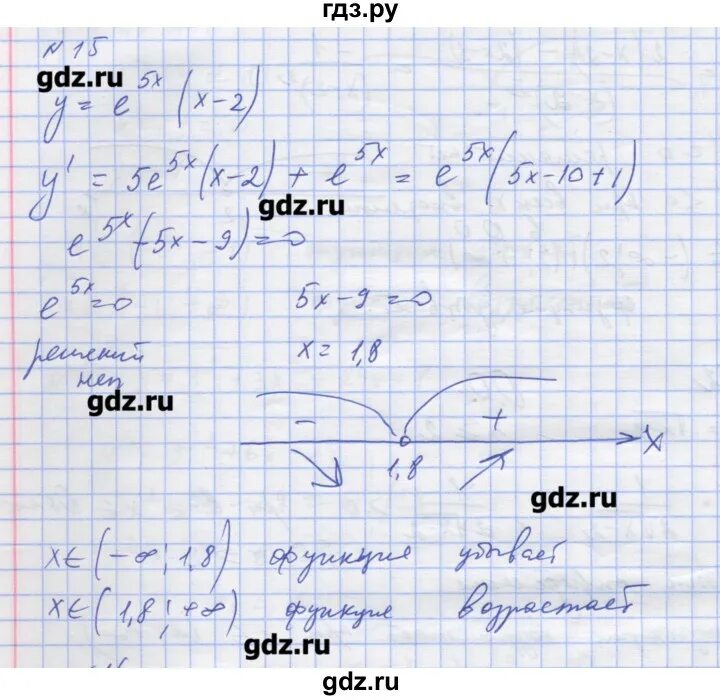 гдз.ру
N 15
gdz.ru
y = e^5x (x-2)
y' = 5e^5x (x-2) + e^5x = e^5x (5x-10+1)
gdz.ru
e^5x (5x-9)=0
e^5x=0 5x-9=0
решений x = 1,8
нет
gdz.ru
- +
1,8 x
gdz.ru
x∈(-∞; 1,8) функция убывает
x∈(1,8; +∞) функция возрастает
gdz.ru
гдз.ру